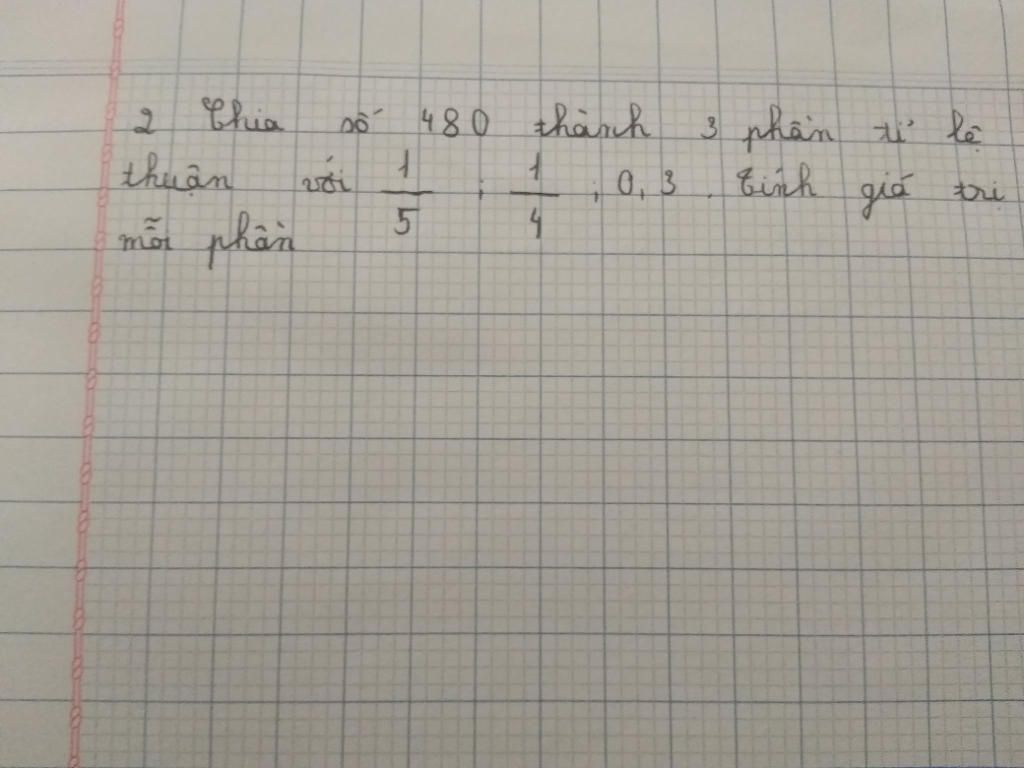 2 Chia số 480 thành 3 phần tỉ lệ
thuận với 1/5 ; 1/4 ; 0,3. Tính giá trị
mỗi phần